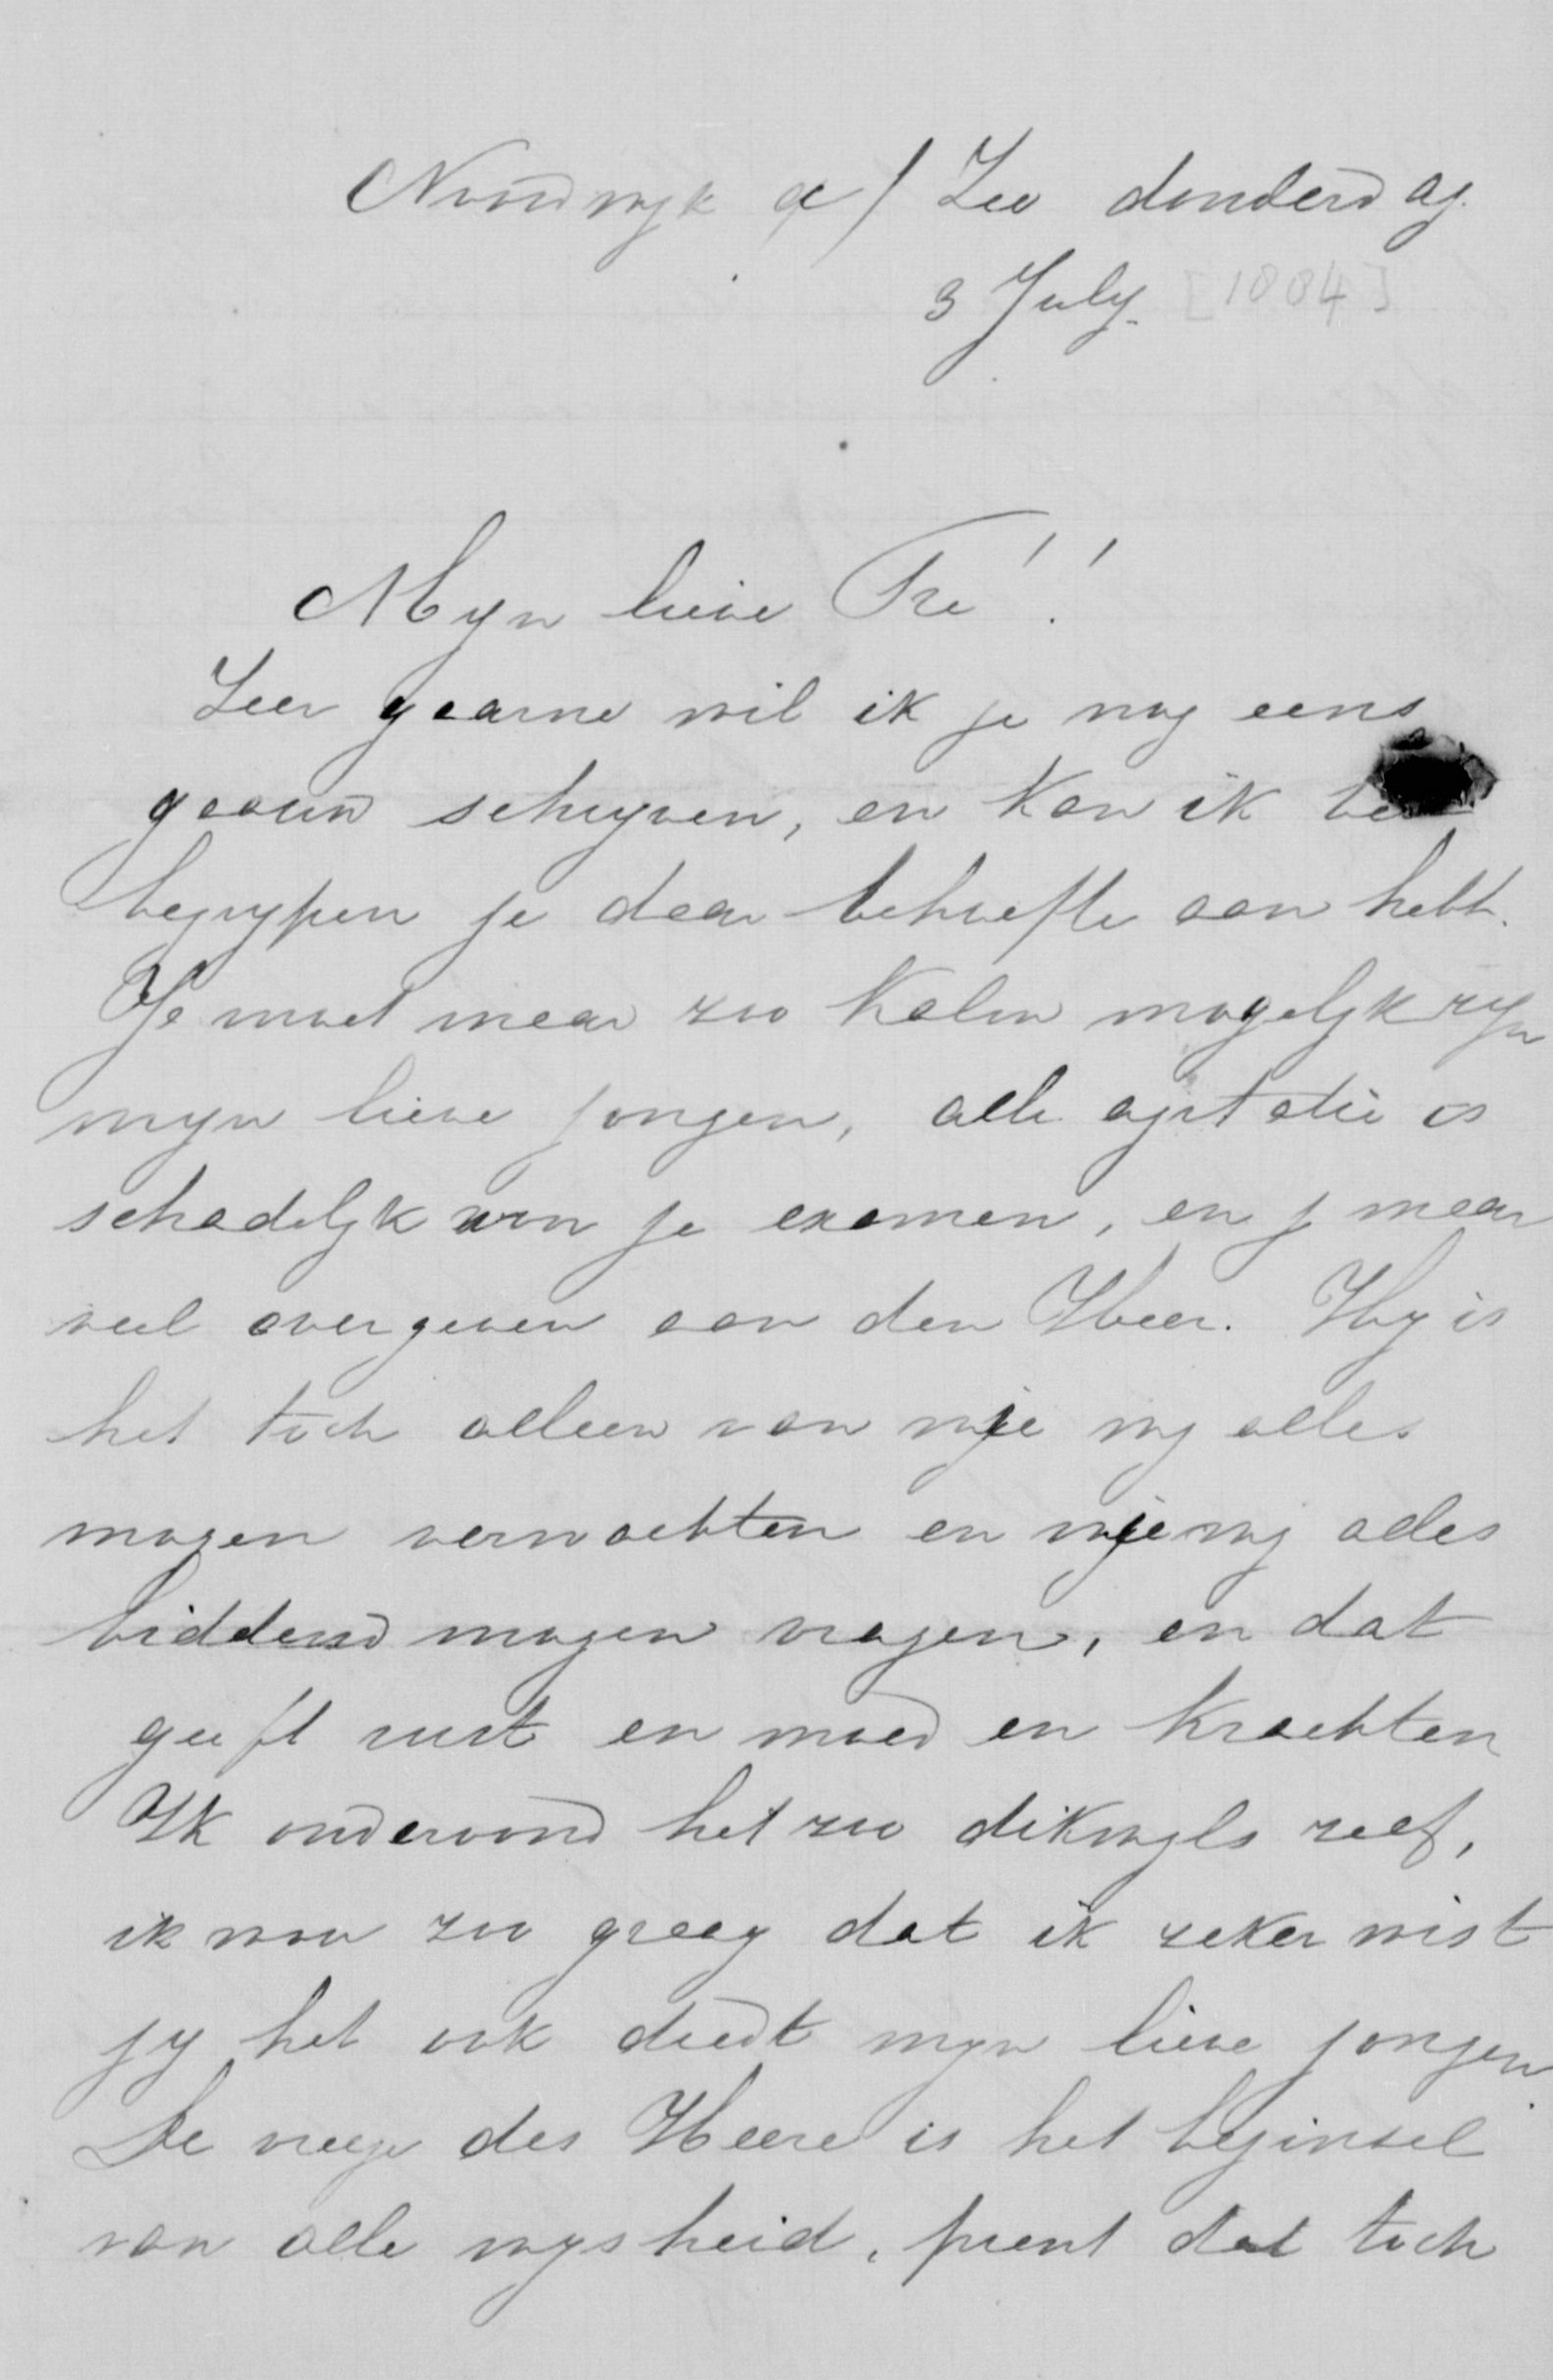 Noordwyk a/ Zee donderdag.
3 July. [1884]
Myn lieve Fré!
Zeer gaarne wil ik je nog eens
gaauw schryven, en kan ik
begrypen je daar behoefte aan hebt.
Je moet maar zoo kalm mogelyk zyn
myn lieve jongen, alle agitatie is
schadelyk voor je examen, en je maar
veel overgeven aan den Heer. Hy is
het toch alleen van wie wy alles
mogen verwachten en wie wy alles
biddend mogen vragen, en dat
geeft rust en moed en krachten
Ik ondervond het zoo dikwyls zelf,
ik wou zoo graag dat ik zeker wist
jy het ook deedt myn lieve jongen.
De vreeze des Heere is het beginsel
van alle wysheid, prent dat toch